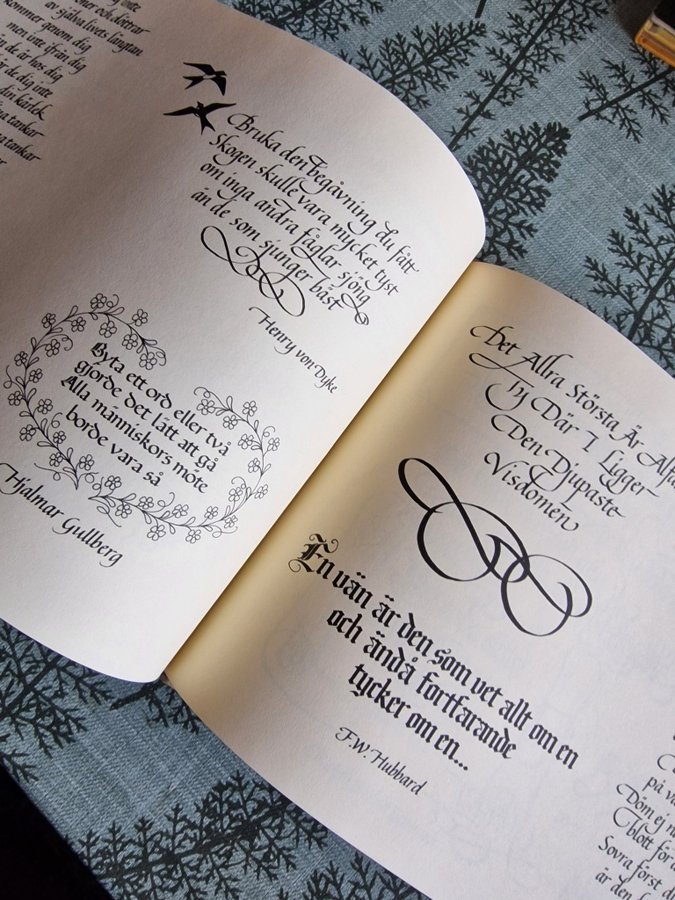 inte
och döttrar
av själva livets längtan
kommer genom dig
men inte ifrån dig
de är hos dig
de dig inte
din kärlek
tankar
tankar
Bruka den begåvning du fått
Skogen skulle vara mycket tyst
om inga andra fåglar sjöng
än de som sjunger bäst
Henry von Dyke
Byta ett ord eller två
gjorde det lätt att gå
Alla människors möte
borde vara så
Hjalmar Gullberg
Det Allra Största Är Alfa
Ty Där I Ligger
Den Djupaste
Visdomen
En vän är den som vet allt om en
och ändå fortfarande
tycker om en...
F.W. Hubbard
på
Döm ej
blott för
Sovra först
är den